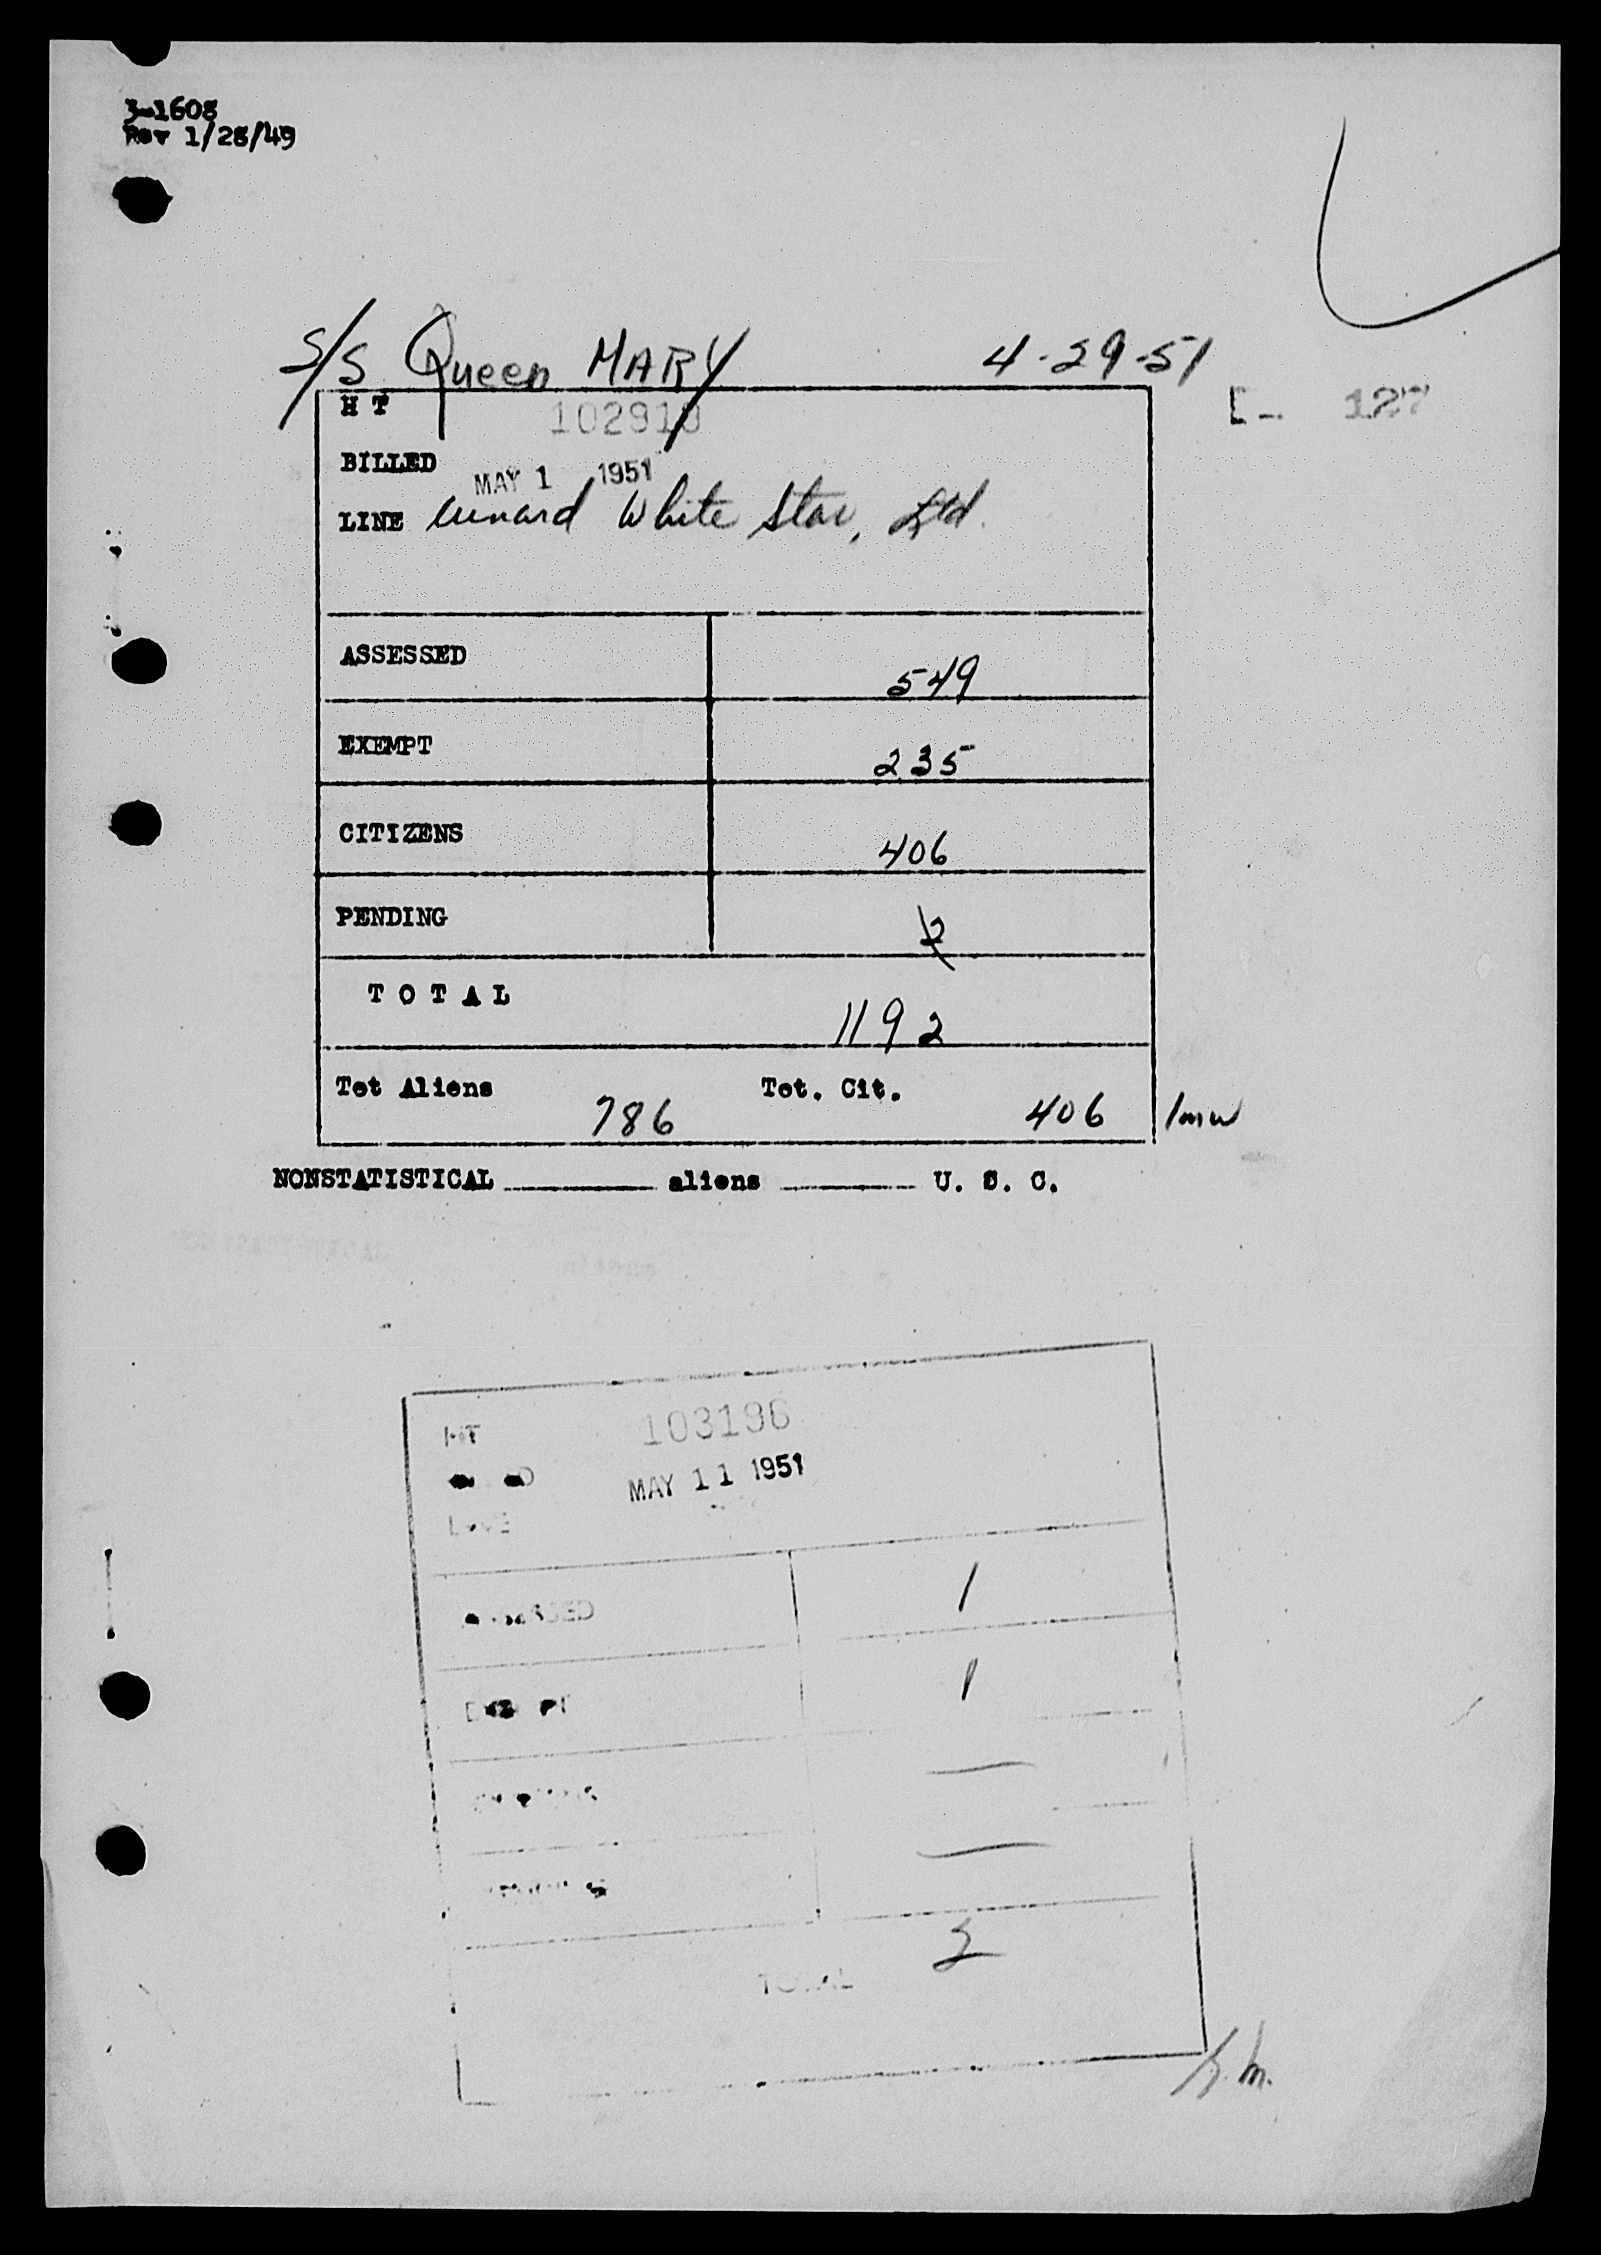 3-1608
Rev 1/28/49
S/S Queen MARY 4-29-51
H T 102918
BILLED MAY 1 1951
LINE Cunard White Star, Ltd.
127
ASSESSED 549
EXEMPT 235
CITIZENS 406
PENDING 2
TOTAL 1192
Tot Aliens 786 Tot. Cit. 406 /mw
NONSTATISTICAL ______ aliens ______ U. S. C.
HT 103196
MAY 11 1951
1
1
—
—
TOTAL 2